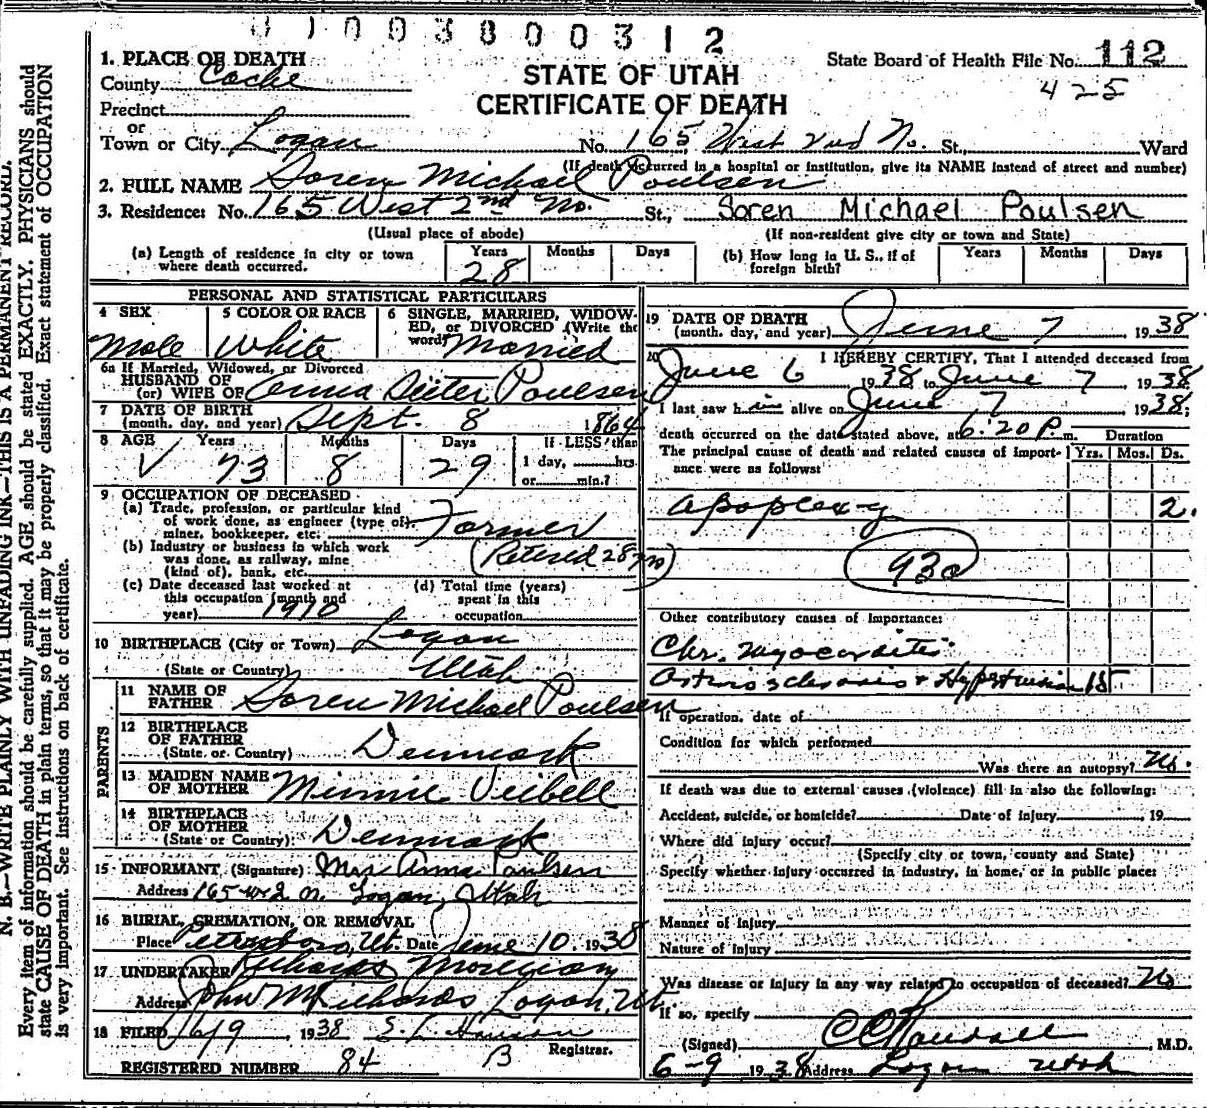 0 1 0 0 3 8 0 0 3 1 2
1. PLACE OF DEATH
State Board of Health File No. 112
County Cache
STATE OF UTAH
425
CERTIFICATE OF DEATH
Precinct
or
Town or City Logan No. 165 West 2nd No. St., Ward
(If death occurred in a hospital or institution, give its NAME instead of street and number)
2. FULL NAME Soren Michael Poulsen
3. Residence: No. 165 West 2nd No. St., Soren Michael Poulsen
(Usual place of abode) (If non-resident give city or town and State)
(a) Length of residence in city or town where death occurred. Years 28 Months Days (b) How long in U. S., if of foreign birth? Years Months Days
PERSONAL AND STATISTICAL PARTICULARS
4 SEX Male
5 COLOR OR RACE White
6 SINGLE, MARRIED, WIDOWED, or DIVORCED (Write the word) Married
6a If Married, Widowed, or Divorced
HUSBAND OF
(or) WIFE OF Anna Poulsen
7 DATE OF BIRTH
(month, day, and year) Sept. 8 1864
8 AGE Years 73 Months 8 Days 29 If LESS than
1 day, hrs.
or min.?
9 OCCUPATION OF DECEASED
(a) Trade, profession, or particular kind
of work done, as engineer (type of),
miner, bookkeeper, etc. Farmer
(b) Industry or business in which work
was done, as railway, mine
(kind of), bank, etc. (Retired 28 yrs)
(c) Date deceased last worked at
this occupation (month and
year) 1910
(d) Total time (years)
spent in this
occupation
10 BIRTHPLACE (City or Town) Logan
(State or Country) Utah
PARENTS
11 NAME OF
FATHER Soren Michael Poulsen
12 BIRTHPLACE
OF FATHER
(State or Country) Denmark
13 MAIDEN NAME
OF MOTHER Minnie Veibell
14 BIRTHPLACE
OF MOTHER
(State or Country) Denmark
15 INFORMANT (Signature) Mrs Anna Poulsen
Address 165 W 2 N. Logan, Utah
16 BURIAL, CREMATION, OR REMOVAL
Place Petersboro, Ut. Date June 10 1938
17 UNDERTAKER Richards Mortuary
Address John M Richards Logan, Ut.
18 FILED 6/9 1938
Registrar.
B
REGISTERED NUMBER 84
19 DATE OF DEATH
(month, day, and year) June 7 1938
20 I HEREBY CERTIFY, That I attended deceased from
June 6 1938 to June 7 1938
I last saw him alive on June 7 1938;
death occurred on the date stated above, at 6:20 P. m. Duration
The principal cause of death and related causes of importance were as follows: Yrs. Mos. Ds.
Apoplexy 2.
Other contributory causes of importance:
Chr. myocarditis
Arteriosclerosis + Hypertension 15
If operation, date of
Condition for which performed
Was there an autopsy? No.
If death was due to external causes (violence) fill in also the following:
Accident, suicide, or homicide? Date of injury , 19
Where did injury occur?
(Specify city or town, county and State)
Specify whether injury occurred in industry, in home, or in public place:
Manner of injury
Nature of injury
Was disease or injury in any way related to occupation of deceased? No
If so, specify
(Signed) C C Randall , M.D.
6-9 1938 Address Logan Utah
N. B.—WRITE PLAINLY WITH UNFADING INK—THIS IS A PERMANENT RECORD.
Every item of information should be carefully supplied. AGE should be stated EXACTLY. PHYSICIANS should
state CAUSE OF DEATH in plain terms, so that it may be properly classified. Exact statement of OCCUPATION
is very important. See instructions on back of certificate.